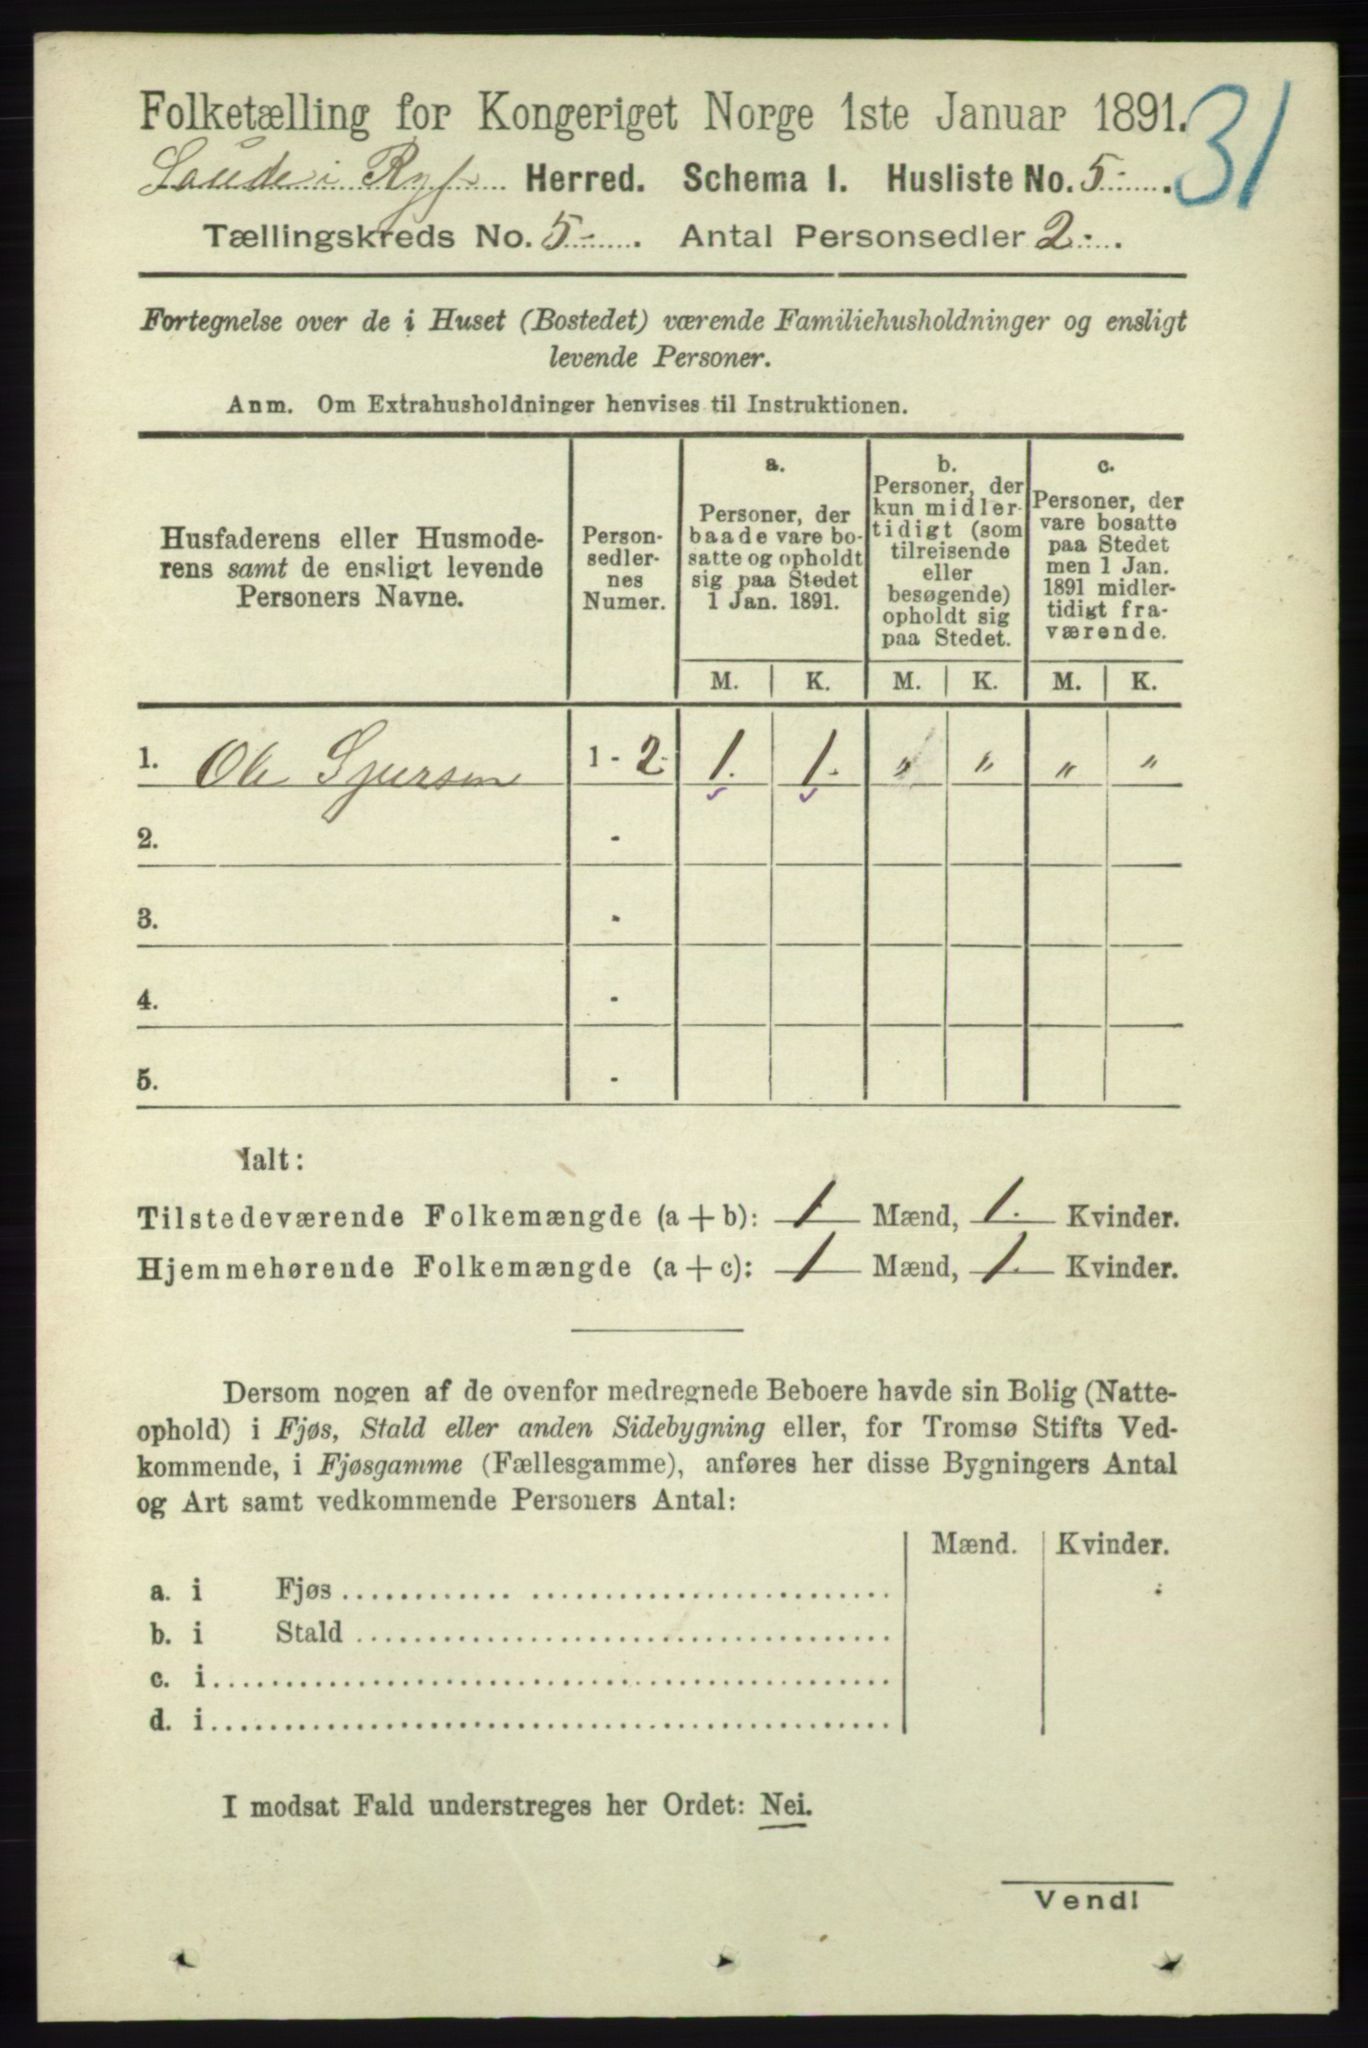 Folketælling for Kongeriget Norge 1ste Januar 1891.
31
Saude i Ryf Herred. Schema 1. Husliste No. 5
Tællingskreds No. 5 . Antal Personsedler 2 .
Fortegnelse over de i Huset (Bostedet) værende Familiehusholdninger og ensligt
levende Personer.
Anm. Om Extrahusholdninger henvises til Instruktionen.
Husfaderens eller Husmode-
rens samt de ensligt levende
Personers Navne.
Person-
sedler-
nes
Numer.
a.
Personer, der
baade vare bo-
satte og opholdt
sig paa Stedet
1 Jan. 1891.
b.
Personer, der
kun midler-
tidigt (som
tilreisende
eller
besøgende)
opholdt sig
paa Stedet.
c.
Personer, der
vare bosatte
paa Stedet
men 1 Jan.
1891 midler-
tidigt fra-
værende.
M. K. M. K. M. K.
1. Ole Sjursen 1 - 2 1. 1. " " " "
2. -
3. -
4. -
5. -
Ialt:
Tilstedeværende Folkemængde (a + b): 1 Mænd, 1. Kvinder.
Hjemmehørende Folkemængde (a + c): 1 Mænd, 1. Kvinder.
Dersom nogen af de ovenfor medregnede Beboere havde sin Bolig (Natte-
ophold) i Fjøs, Stald eller anden Sidebygning eller, for Tromsø Stifts Ved-
kommende, i Fjøsgamme (Fællesgamme), anføres her disse Bygningers Antal
og Art samt vedkommende Personers Antal:
Mænd. Kvinder.
a. i Fjøs
b. i Stald
c. i
d. i
I modsat Fald understreges her Ordet: Nei.
Vend!